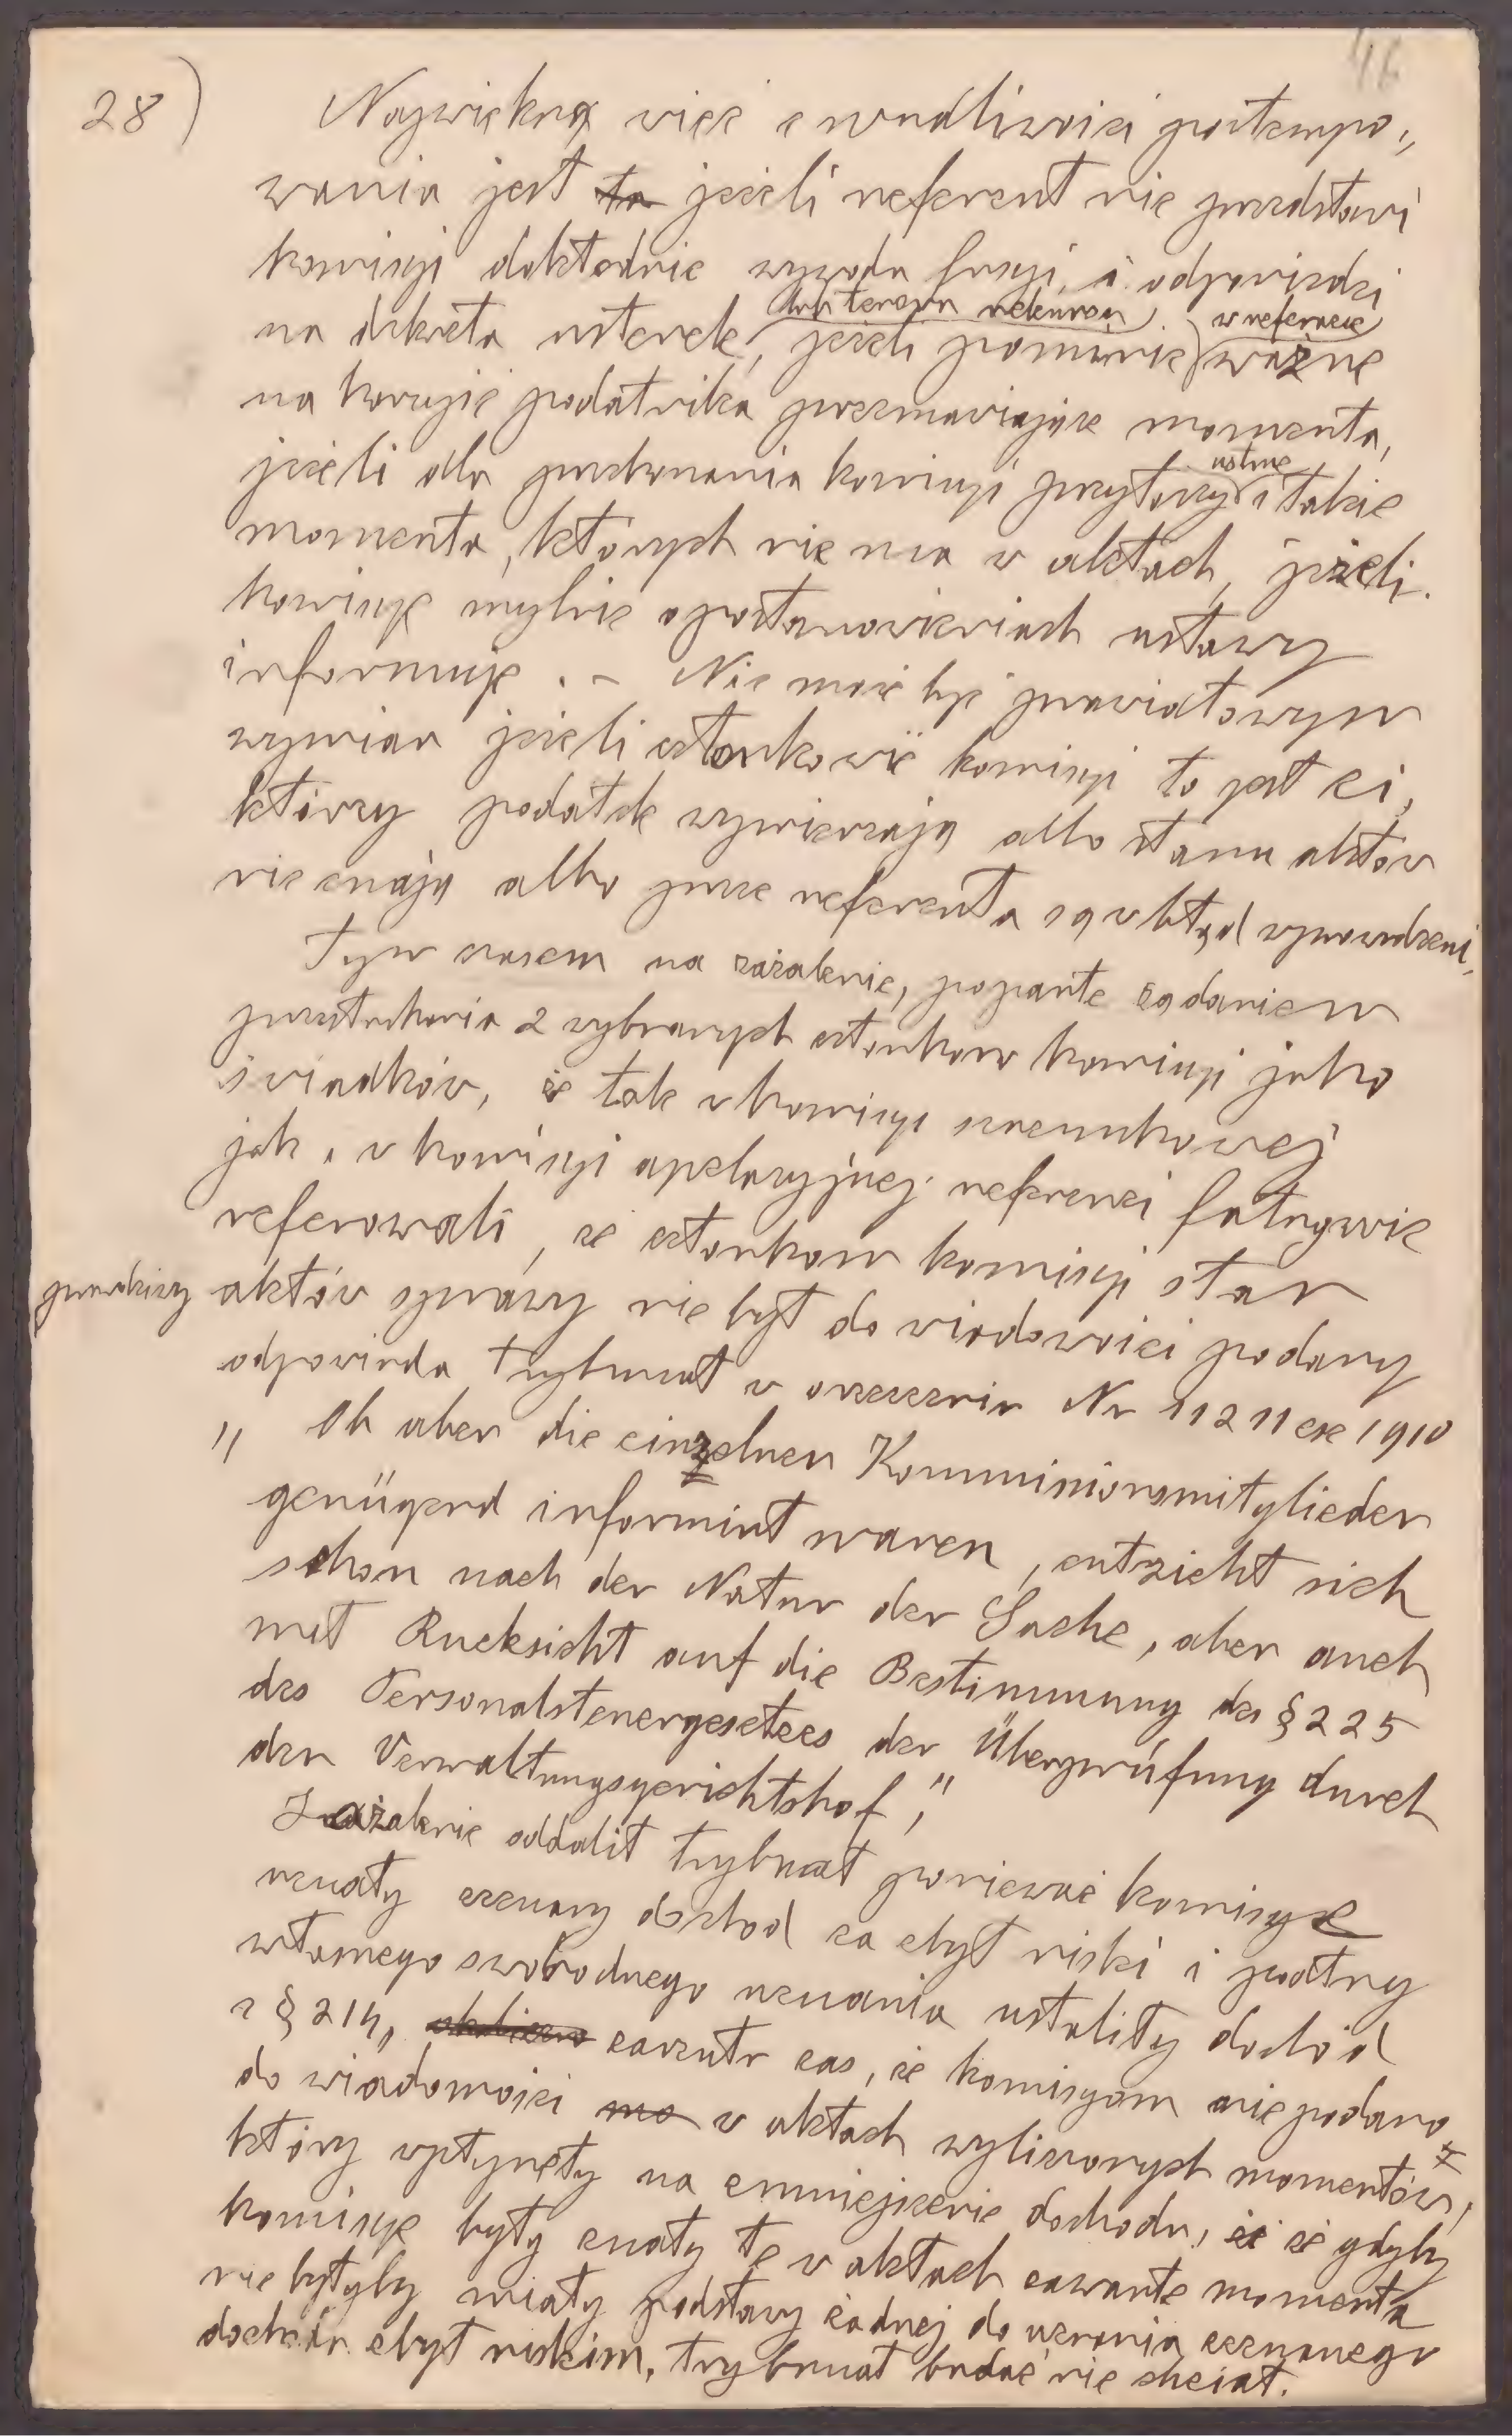 28)
46
Największą więc wadliwości postempo„
wania jest ta jeżeli referent nie przedstawi
komisyi dokładnie wywodu fasyi, i odpowiedzi
na dekreta usterek, jeżeli pominie w referacie ważne
na korzyść podatnika przemawiające momenta,
jeżeli dla przekonania komisyi przytoczy ustnie i takie
momenta, których nie ma w aktach, jeżeli
komisyę mylnie o postanowieniach ustawy
informuje. – Nie może być prawidłowym
wymiar jeżeli członkowie komisyi to jest ci,
którzy podatek wymierzają albo stanu aktów
nie znają albo przez referenta są w błąd wprowadzeni,
Tym czasem na zażalenie, poparte żądaniem
przesłuchania 2 wybranych członkow komisyi jako
świadków, że tak w komisyi szacunkowej
jak i w komisyi apelacyjnej referenci fałszywie
referowali, że członkom komisyi stan
prawdziwy aktów sprawy nie był do wiadomości podany
odpowiada trybunał w orzeczeniu Nr 11211 ex 1910
„ Ob aber die einzelnen Kommissionsmitglieder
genügend informirt waren, entzieht sich
schon nach der Natur der Sache, aber auch
mit Rucksicht auf die Bestimmung des § 225
des Personalsteuergesetzes der Überprüfung durch
den Verwaltungsgerichtshof,"
Zażalenie oddalił trybunał ponieważ komisye
uznały zeznany dochod za zbyt niski i podług
własnego swobodnego uznania ustaliły dochód
z § 214, zarzutu zas, że komisyom nie podano
do wiadomości w aktach wyliczonych momentów,
który wpłynęły na zmniejszenie dochodu, że że gdyby
komisye były znały te w aktach zawarte momenta
nie byłyby miały podstawy żadnej do uznania zeznanego
dochodu zbyt niskim, trybunał badać nie chciał.